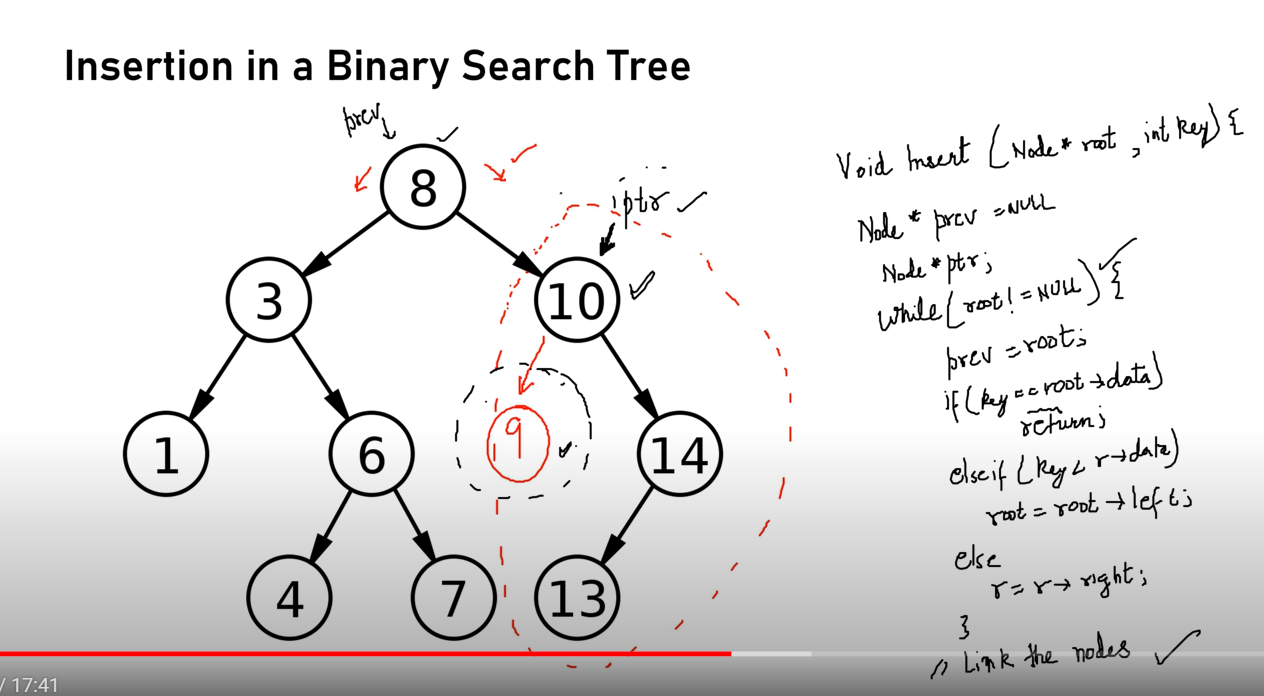 Insertion in a Binary Search Tree
prev
8
iptr
3
10
1
6
9
14
4
7
13
Void Insert (Node* root, int key) {
Node* prev = NULL
Node* ptr;
while (root != NULL) {
prev = root;
if (key == root → data)
return;
else if (key < r → data)
root = root → left;
else
r = r → right;
}
// Link the nodes
/ 17:41